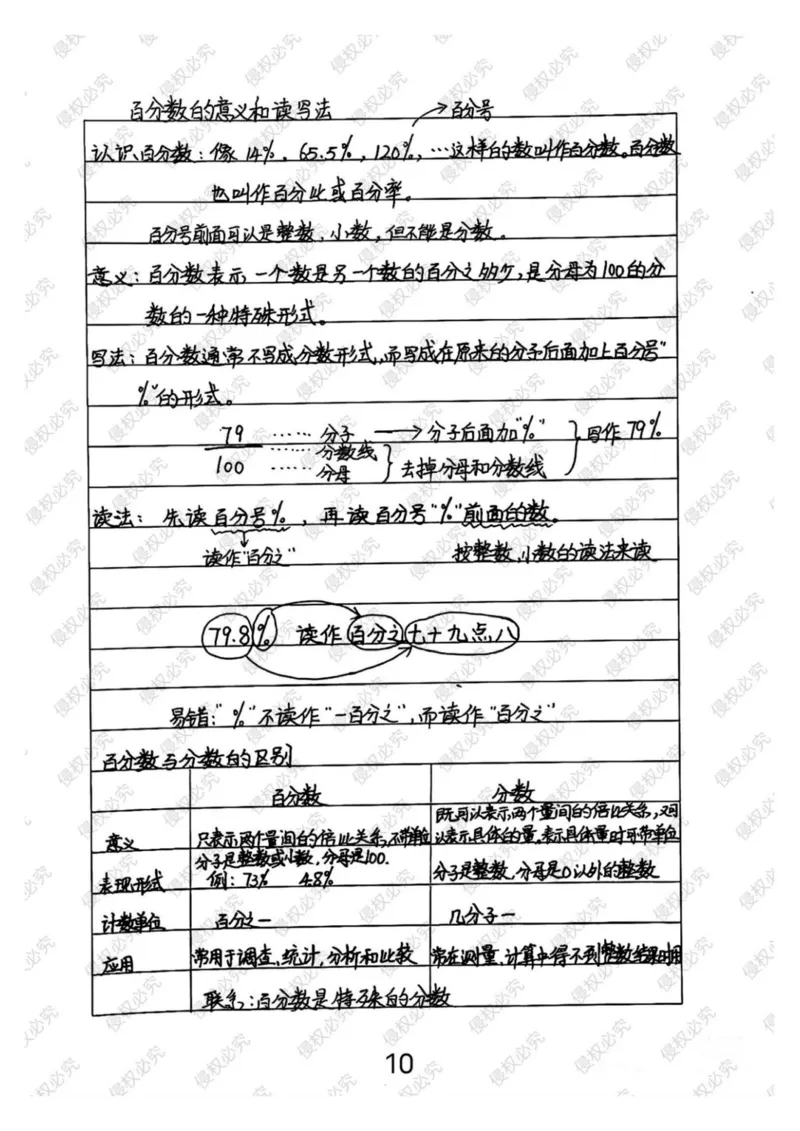 百分数的意义和读写法
百分号
认识百分数：像14%、65.5%，120%，…这样的数叫作百分数。百分数
也叫作百分比或百分率。
百分号前面可以是整数、小数，但不能是分数。
意义：百分数表示一个数是另一个数的百分之多少，是分母为100的分
数的一种特殊形式。
写法：百分数通常不写成分数形式，而写成在原来的分子后面加上百分号"
%"的形式。
79 …… 分子 → 分子后面加"%" 写作79%
…… 分数线
100 …… 分母 去掉分母和分数线
读法：先读百分号%，再读百分号"%"前面的数。
读作"百分之" 按整数、小数的读法来读
79.8% 读作百分之七十九点八
易错："%"不读作"一百分之"，而读作"百分之"
百分数与分数的区别
百分数 分数
意义 只表示两个量间的倍比关系，不带单位 既可以表示两个量间的倍比关系，又可
以表示具体的量。表示具体量时可带单位
表现形式 分子是整数或小数，分母是100. 分子是整数，分母是0以外的整数
例：73% 4.8%
计数单位 百分之一 几分子一
应用 常用于调查、统计，分析和比较 常在测量、计算中得不到整数结果时用
联系：百分数是特殊的分数
10
侵权必究